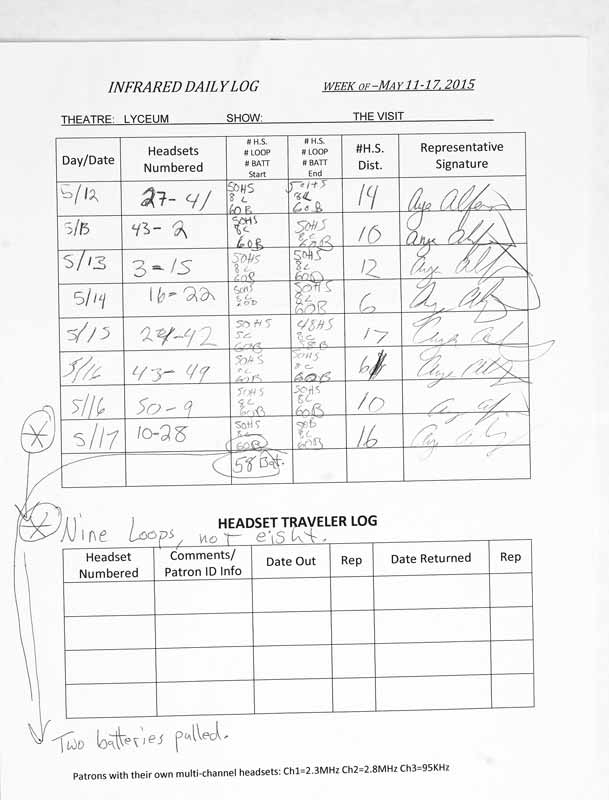 INFRARED DAILY LOG WEEK OF –MAY 11-17, 2015
THEATRE: LYCEUM SHOW: THE VISIT
Day/Date Headsets Numbered # H.S. # LOOP # BATT Start # H.S. # LOOP # BATT End #H.S. Dist. Representative Signature
5/12 27-41 50HS 8L 60B 50HS 8L 60B 14
5/13 43-2 50HS 8L 60B 50HS 8L 60B 10
5/13 3-15 50HS 8L 60B 50HS 8L 60B 12
5/14 16-22 50HS 8L 50HS 8L 60B 6
5/15 -42 50HS 8L 60B 48HS 8L 58B 17
5/16 43-49 50HS 8L 60B 50HS 8L 60B 6
5/16 50-9 50HS 8L 60B 50HS 8L 60B 10
5/17 10-28 50HS 8L 60B 8L 60B 16
58 Batt.
Nine Loops, not eight.
HEADSET TRAVELER LOG
Headset Numbered Comments/ Patron ID Info Date Out Rep Date Returned Rep
Two batteries pulled.
Patrons with their own multi-channel headsets: Ch1=2.3MHz Ch2=2.8MHz Ch3=95KHz